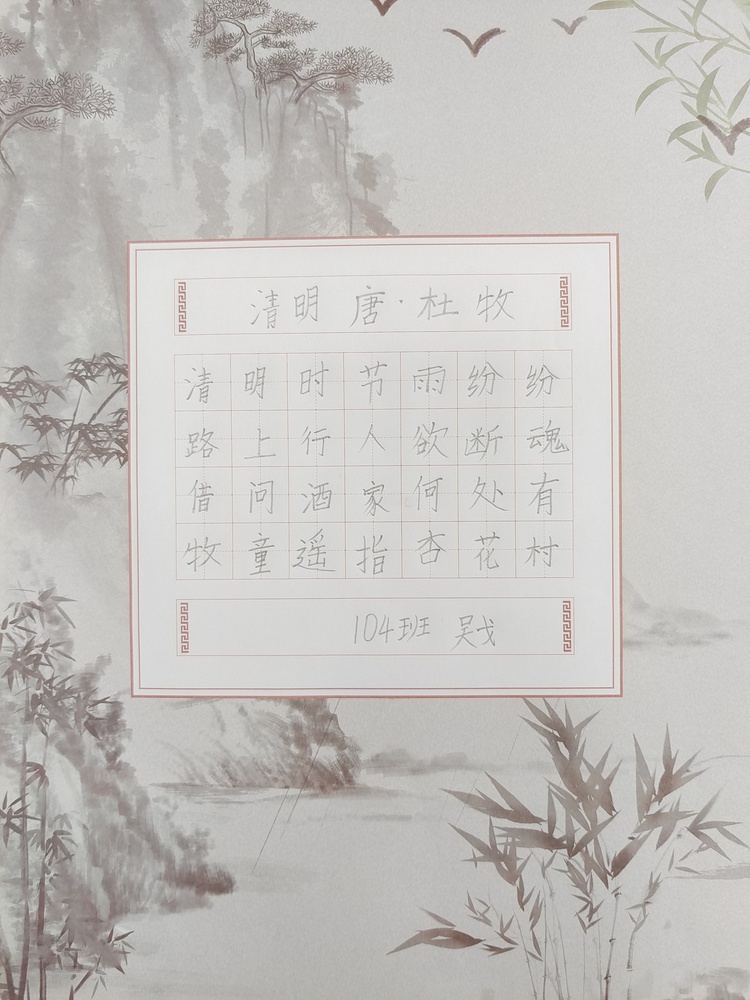 清明 唐·杜牧
清明时节雨纷纷
路上行人欲断魂
借问酒家何处有
牧童遥指杏花村
104班 吴戈